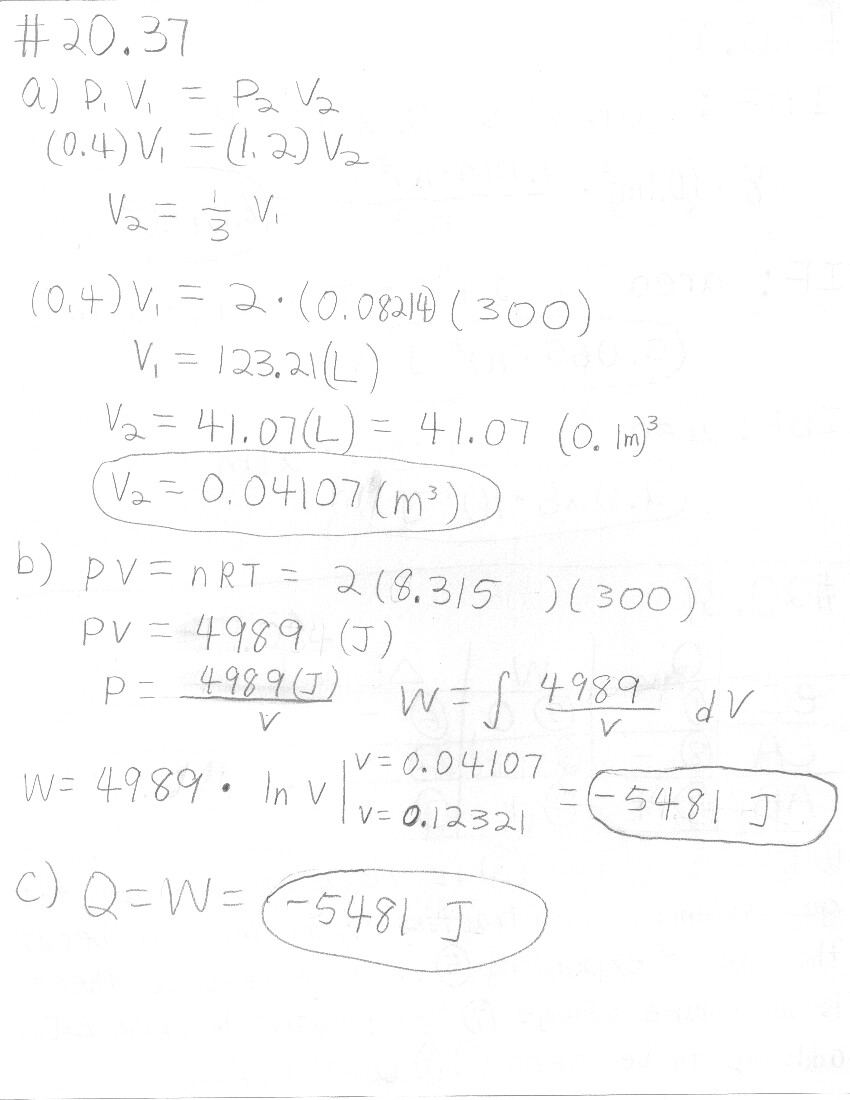 #20.37
a) P₁ V₁ = P₂ V₂
(0.4) V₁ = (1.2) V₂
V₂ = 1/3 V₁
(0.4) V₁ = 2 · (0.08214) (300)
V₁ = 123.21 (L)
V₂ = 41.07 (L) = 41.07 (0.1m)³
V₂ = 0.04107 (m³)
b) PV = nRT = 2 (8.315 ) (300)
PV = 4989 (J)
P = 4989 (J) / V W = ∫ 4989 / V dV
W = 4989 · ln V | V = 0.04107 V = 0.12321 = -5481 J
c) Q = W = -5481 J